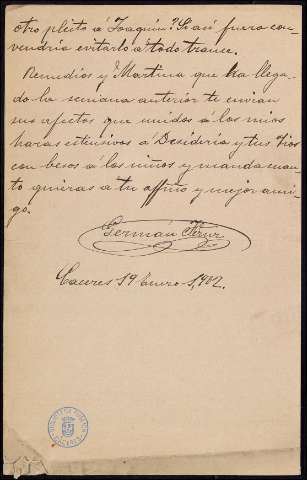 otro pleito á Joaquin? Si asi fuera con-
vendria evitarlo á todo trance.
Remedios y Martina que ha llega-
do la semana anterior te envian
sus afectos que unidos á los mios
haras estensivos á Desideria y tus tios
con besos á los niños y manda cuan-
to quieras á tu affmo y mejor ami-
go.
Germán
Caceres 19 Enero 1,902.
BIBLIOTECA PUBLICA
CACERES